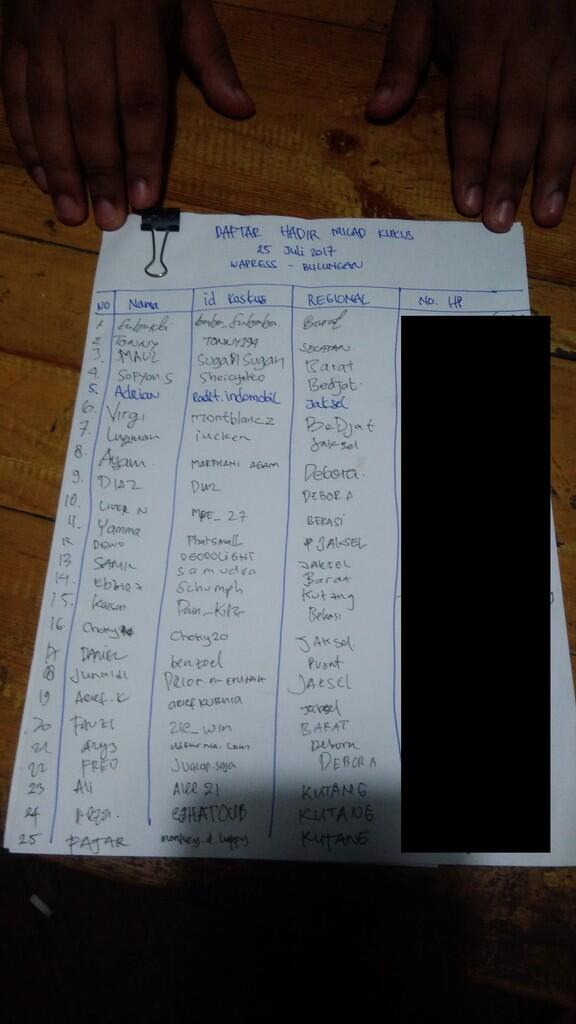 DAFTAR HADIR MILAD KUKUS
25 Juli 2017
WAPRESS - BULUNGAN
NO Nama id Kaskus REGIONAL NO. HP
1 Barat
2 TONNY TONNY354 SELATAN
3. MAUL Suga81Sugan Barat
4. SoFyan.S Bedjat.
5. Adrian Radit.indomobil Jaksel
6. Virgi montblancz BeDjat
7. Luqman iucken Jaksel
8. Agam. MARPHANI AGAM Debora.
9. DIAZ DEBORA
10. LIVER N MPE_27 BEKASI
11. Yamma Phatsmall JAKSEL
12 DEWO DEODOLIGHT JAKSEL
13 SAMIL samudra Barat
14. Schumph Kutang
15. Pain_Kil3r Bekasi
16. Choky Choky20 JAKSEL
17 DANIEL benzoel Pusat
18 Junaidi JAKSEL
19 Arief.K arief kurnia Jaksel
20 FAUZI 212_win BARAT
21 Debora
22 FRED Jualan.saja DEBORA
23 Ali Alee 21 KUTANG
24 KUTANG
25 FAJAR monkey.d.luppy KUTANG